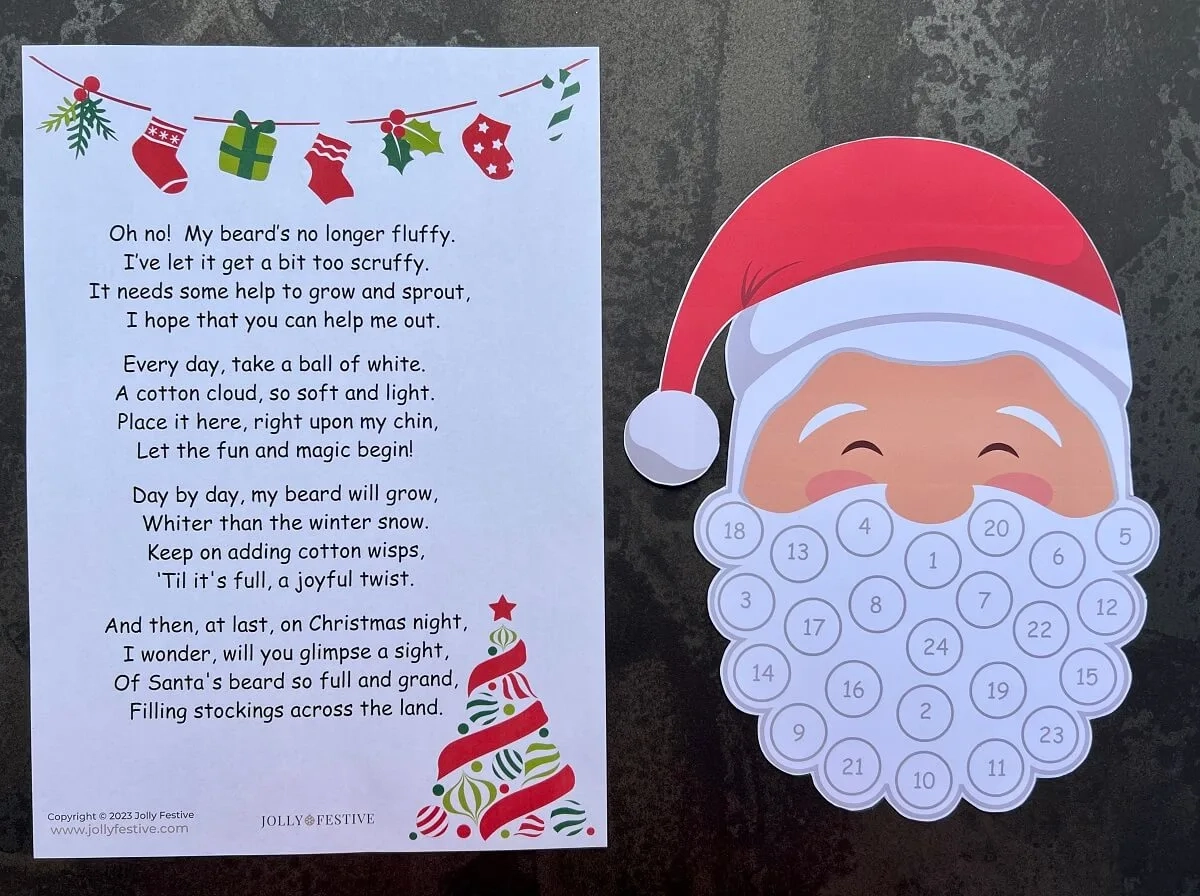 Oh no!  My beard's no longer fluffy.
I've let it get a bit too scruffy.
It needs some help to grow and sprout,
I hope that you can help me out.
Every day, take a ball of white.
A cotton cloud, so soft and light.
Place it here, right upon my chin,
Let the fun and magic begin!
Day by day, my beard will grow,
Whiter than the winter snow.
Keep on adding cotton wisps,
'Til it's full, a joyful twist.
And then, at last, on Christmas night,
I wonder, will you glimpse a sight,
Of Santa's beard so full and grand,
Filling stockings across the land.
Copyright © 2023 Jolly Festive
www.jollyfestive.com
JOLLY FESTIVE
18 13 4 1 20 6 5
3 17 8 7 22 12
24
14 16 2 19 15
9 21 10 11 23